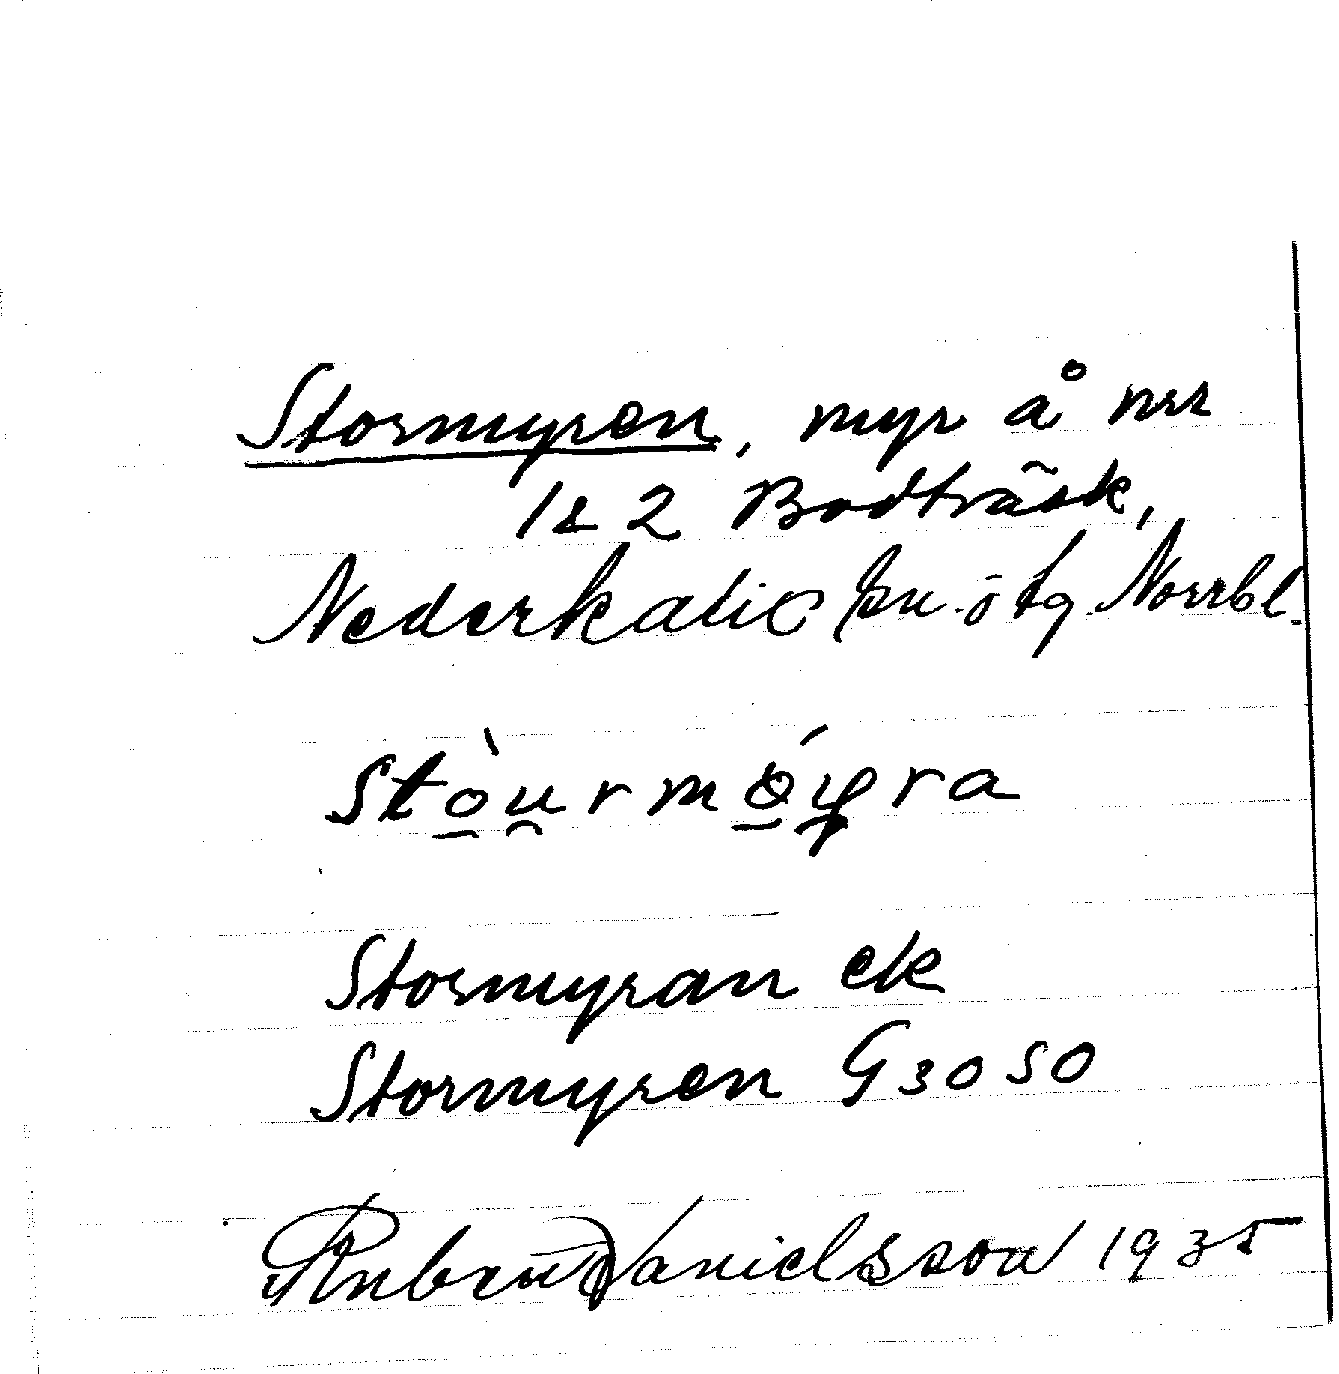 Stormyren, myr å nrr
1 & 2 Bodträsk,
Nederkalix sn ö tg Norrbl.
Stòurmǿyra
Stormyran ek
Stormyren G3050
Ruben Danielsson 1935